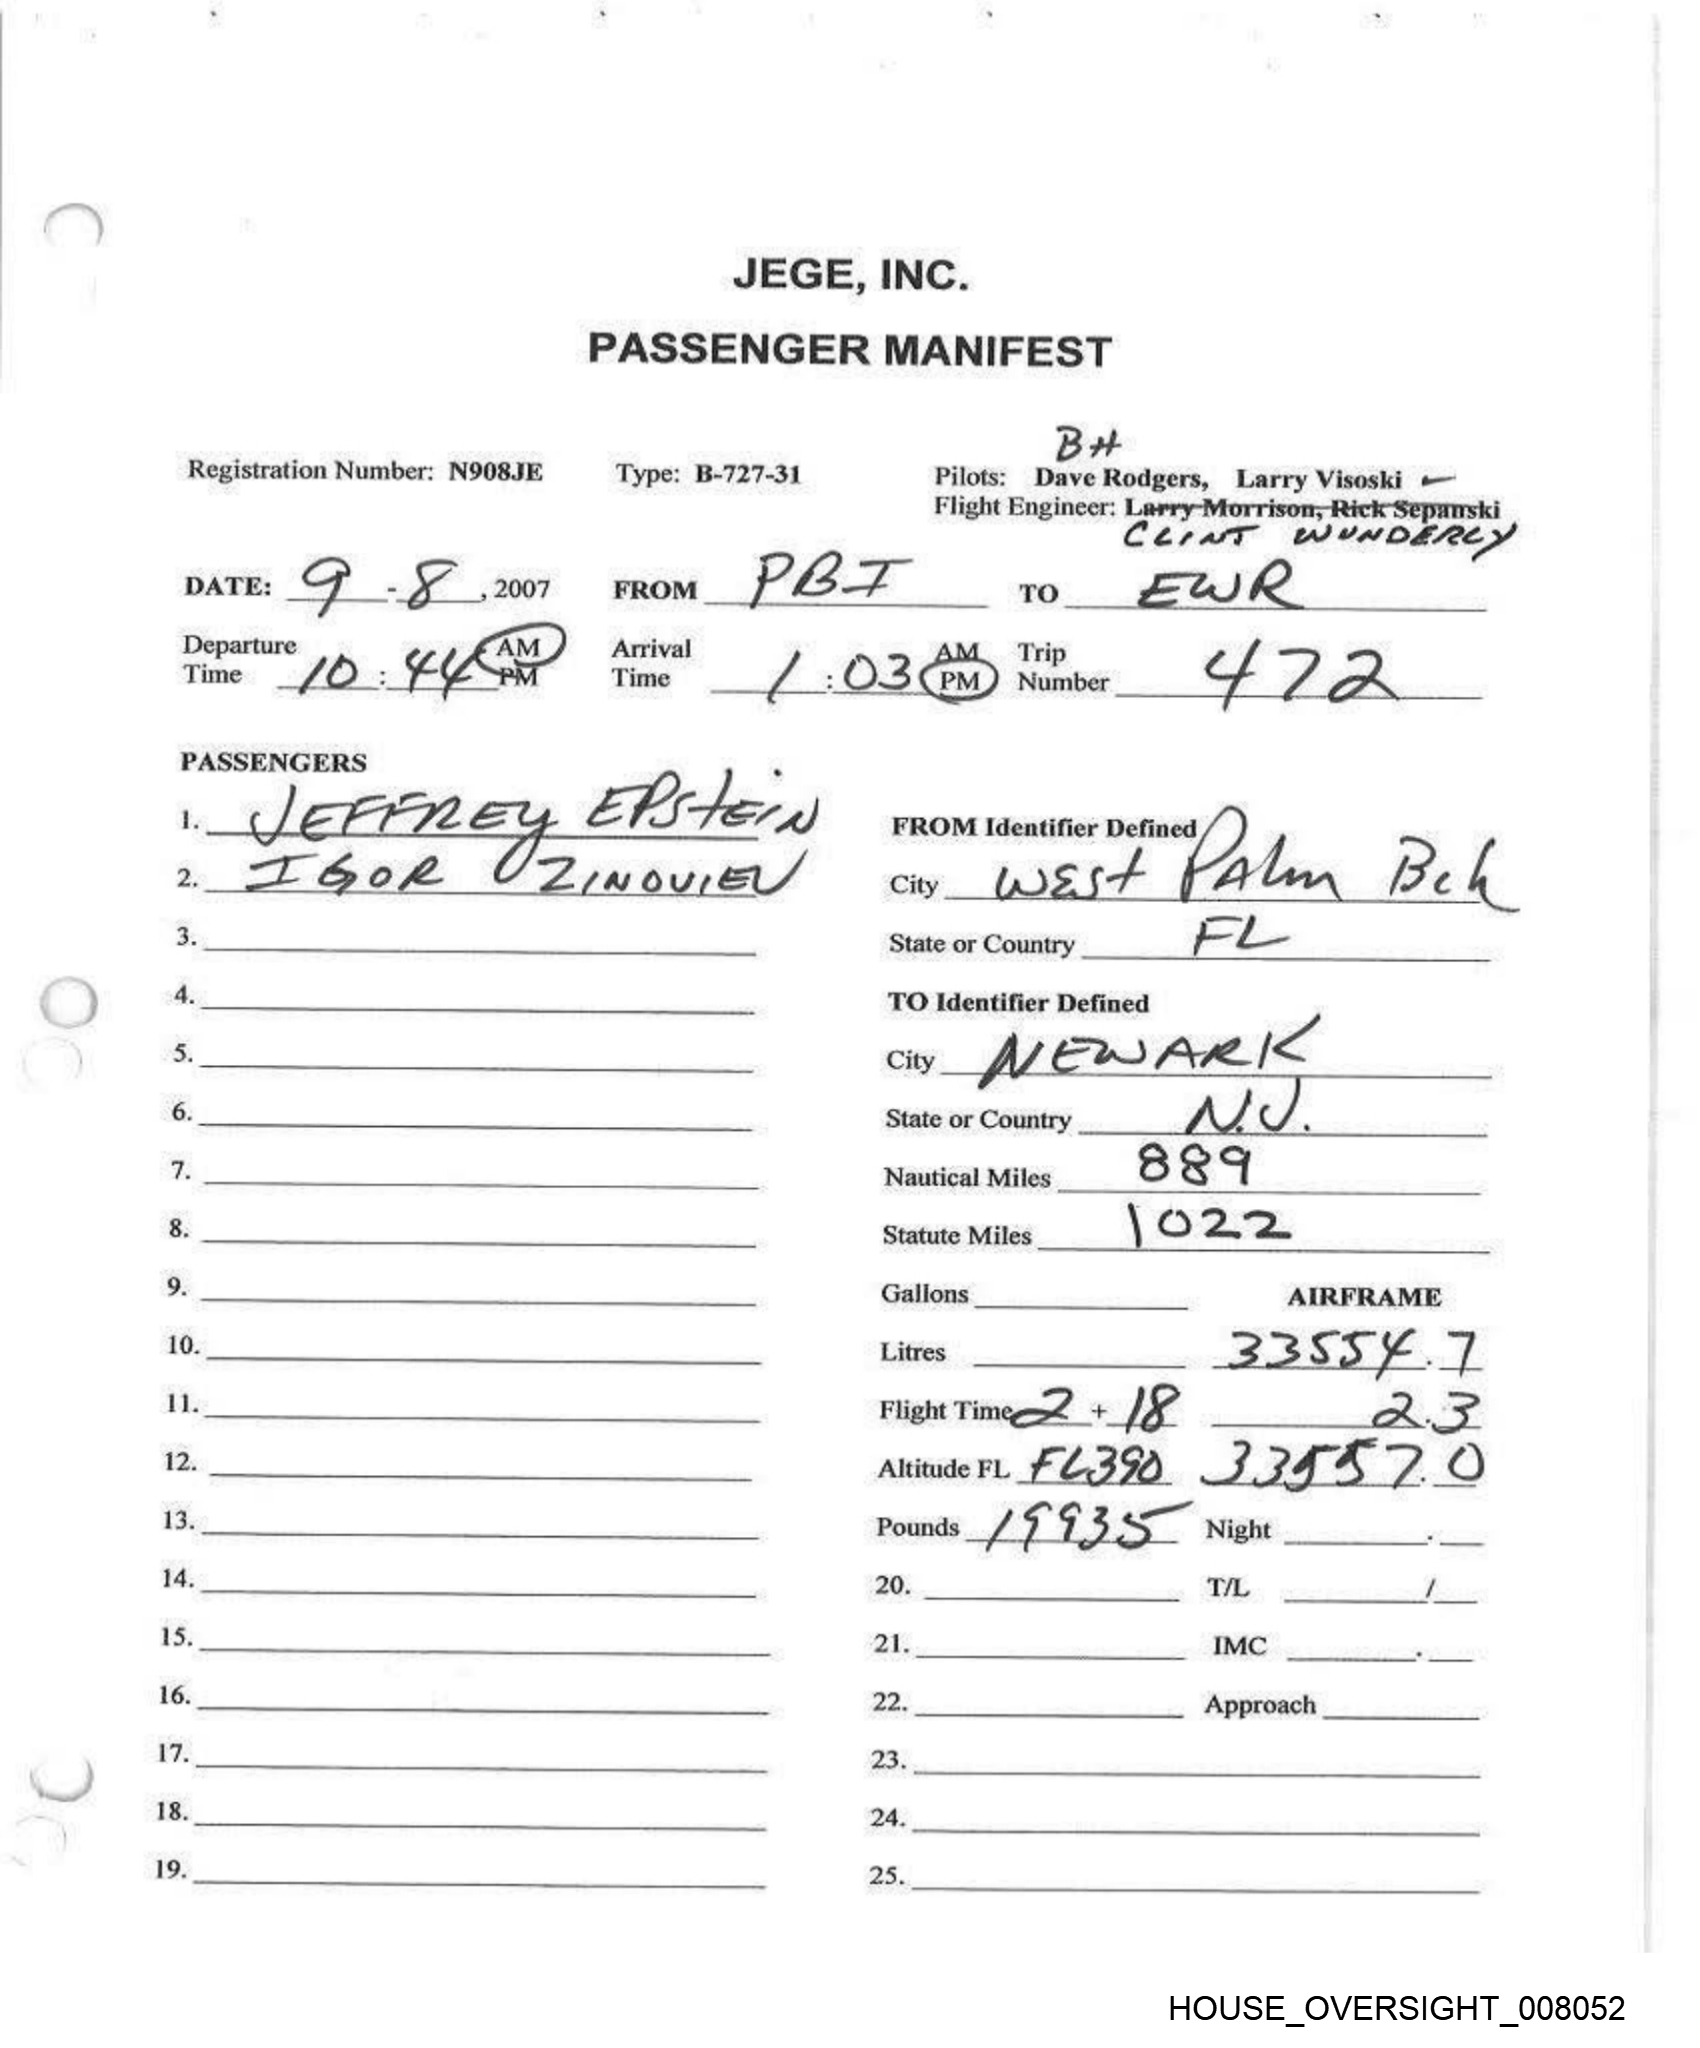 JEGE, INC.
PASSENGER MANIFEST
BH
Registration Number: N908JE Type: B-727-31 Pilots: Dave Rodgers, Larry Visoski
Flight Engineer: Larry Morrison, Rick Sepanski
CLINT WUNDERLY
DATE: 9 - 8, 2007 FROM PBI TO EWR
Departure Time 10:44 AM PM Arrival Time 1:03 AM PM Trip Number 472
PASSENGERS
1. JEFFREY EPStEIN
2. IGOR ZINOVIEV
3.
4.
5.
6.
7.
8.
9.
10.
11.
12.
13.
14.
15.
16.
17.
18.
19.
FROM Identifier Defined
City WESt PAlm Bch
State or Country FL
TO Identifier Defined
City NEWARK
State or Country N.J.
Nautical Miles 889
Statute Miles 1022
Gallons AIRFRAME
Litres 33554.7
Flight Time 2 + 18 2.3
Altitude FL FL390 33557.0
Pounds 19935 Night .
20. T/L /
21. IMC .
22. Approach
23.
24.
25.
HOUSE_OVERSIGHT_008052